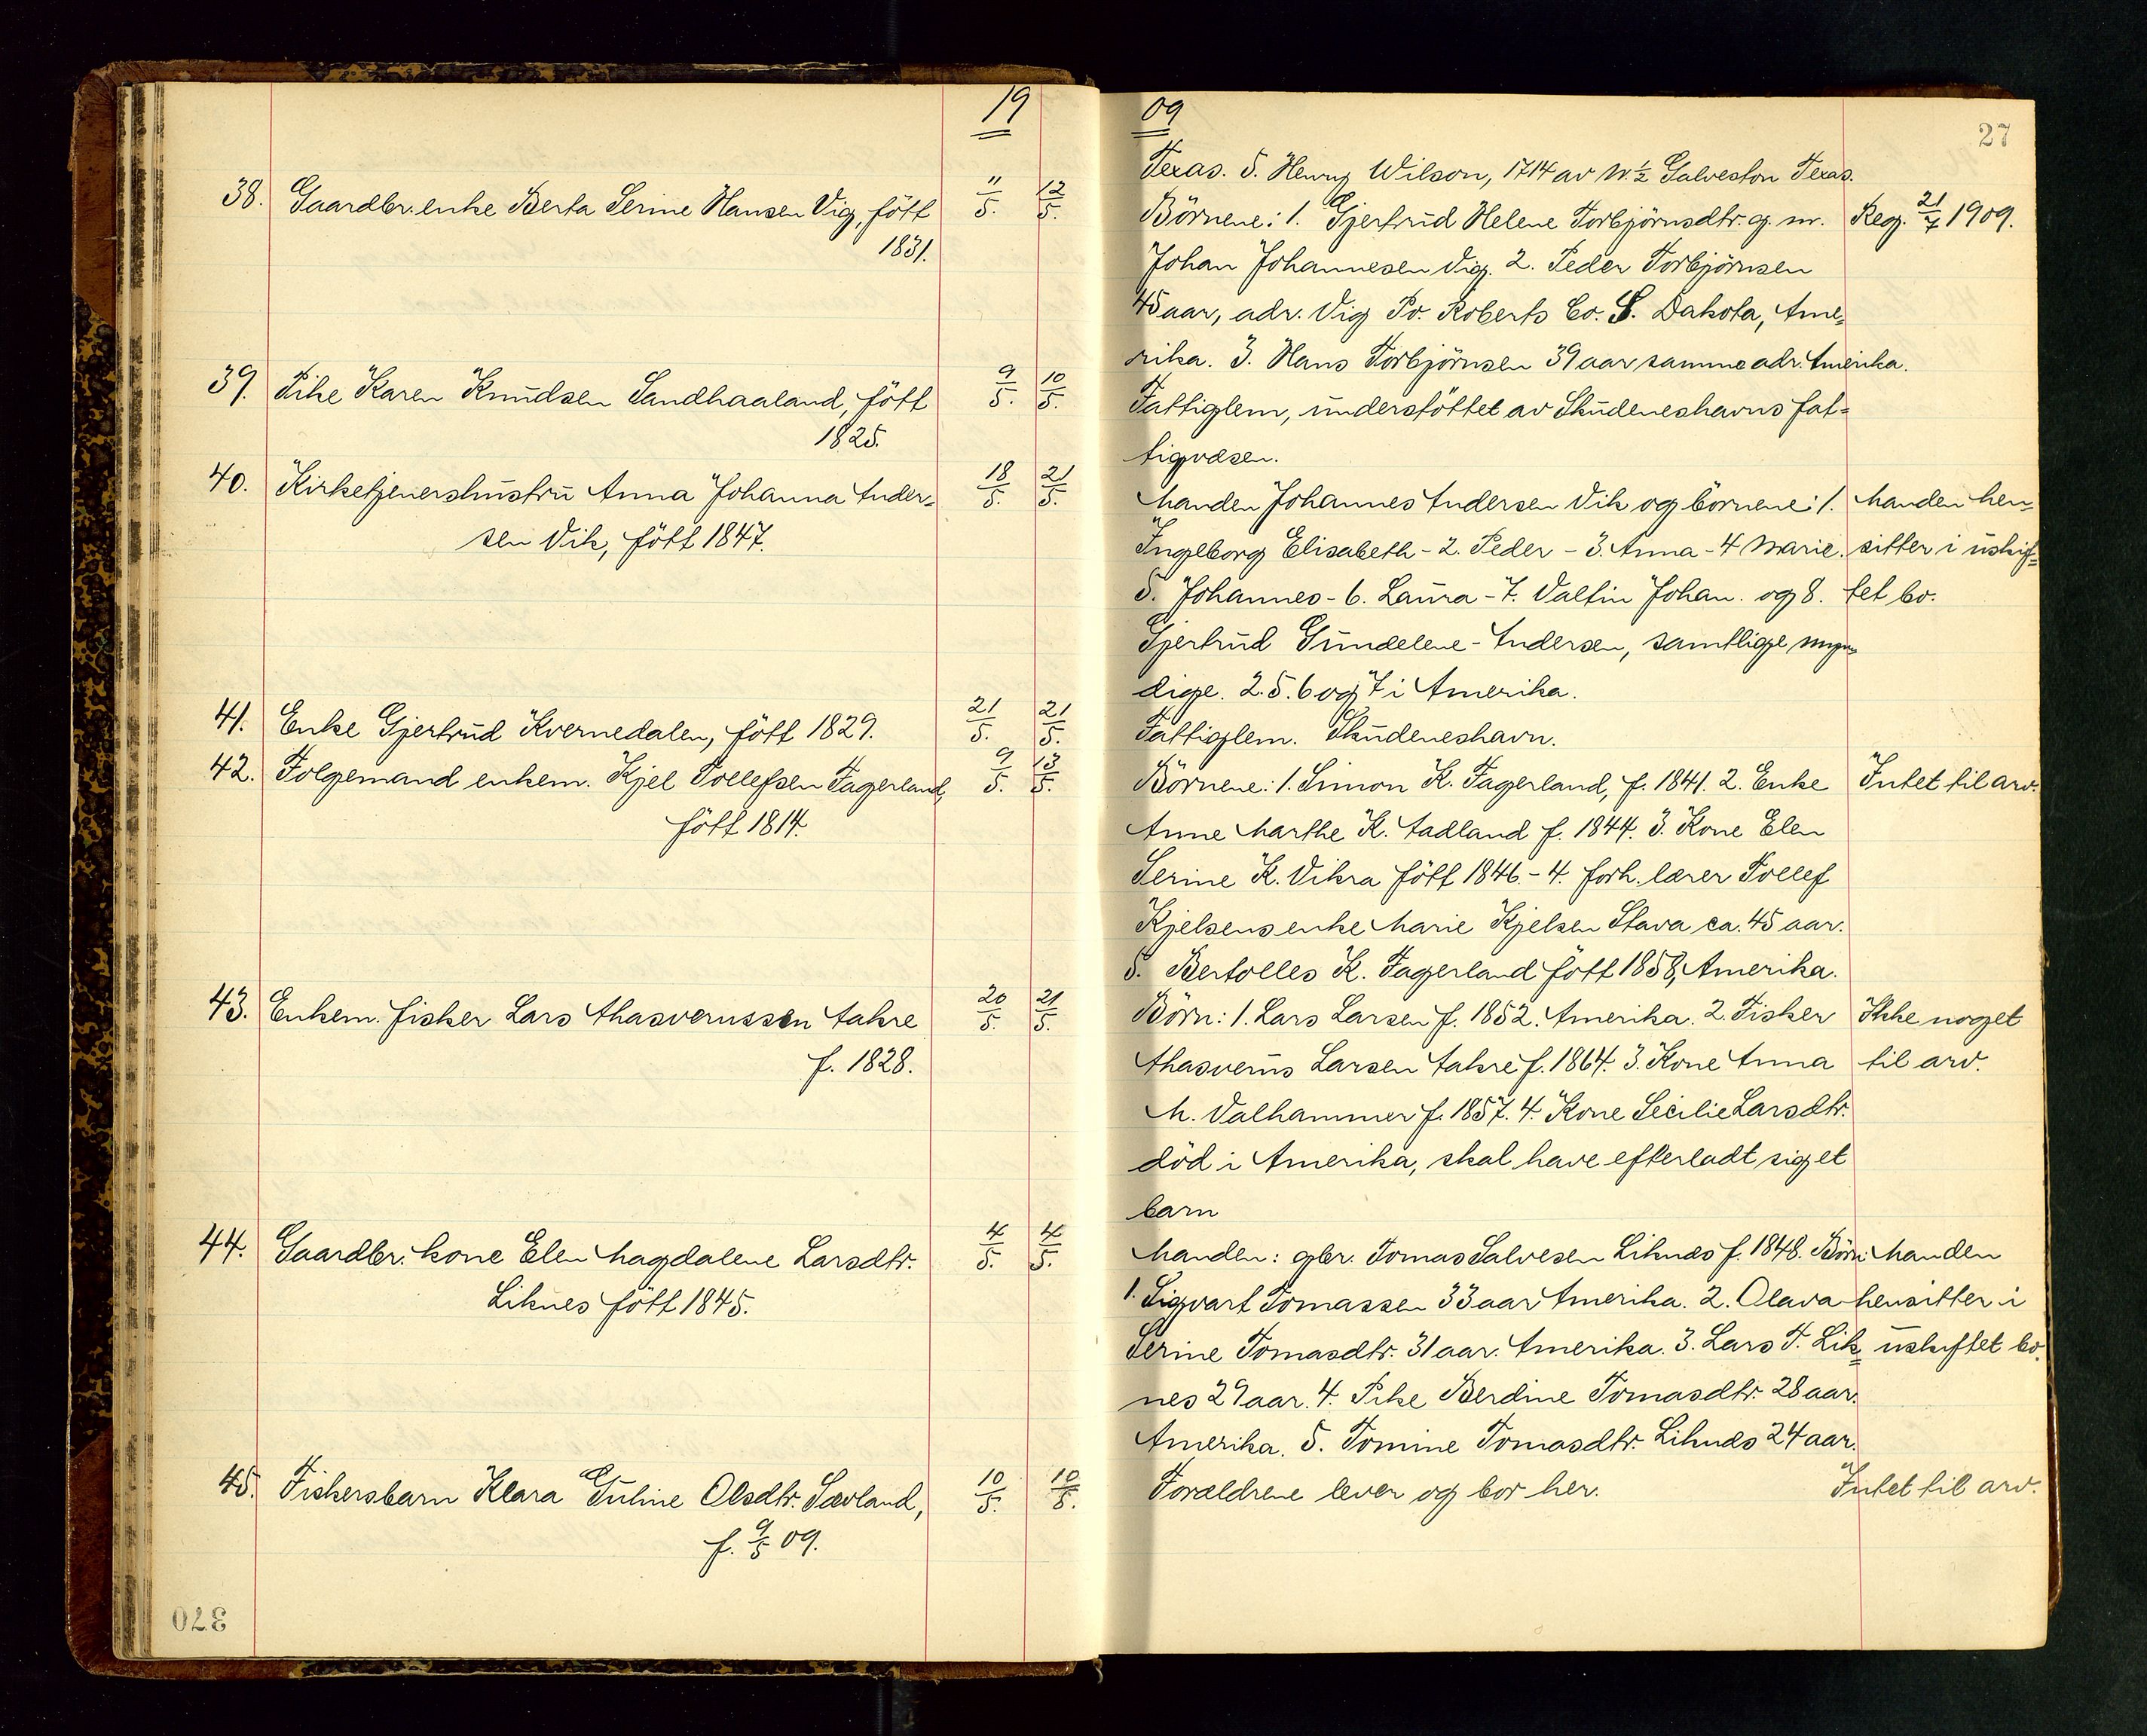 19 09
27
Texas. 5. Henry Wilson, 1714 av N. ½ Galveston Texas.
38. Gaardbr. enke Berta Serine Hansen Vig, født 11/5. 12/5.
1831.
Börnene: 1. Gjertrud Helene Torbjörnsdtr. g. m. Reg. 21/7 1909.
Johan Johannesen Vig. 2. Peder Torbjörnsen
45 aar, adr. Vig Po. Roberts Co. S. Dakota, Ame-
rika. 3. Hans Torbjörnsen 39 aar samme adr. Amerika.
39. Pike Karen Knudsen Sandhaaland, fött 9/5. 10/5.
1825.
Fattiglem, understöttet av Skudeneshavns fat-
tigvæsen.
40. Kirketjenershustru Anna Johanna Ander- 18/5. 21/5.
sen Vik, fött 1847.
Manden Johannes Andersen Vik og börnene: 1. Manden hen-
Ingeborg Elisabeth - 2. Peder - 3. Anna - 4 Marie. sitter i uskif-
5. Johannes - 6. Laura - 7. Valtin Johan. og 8. tet bo.
Gjertrud Gundelene - Andersen, samtlige myn-
dige. 2. 5. 6 og 7 i Amerika.
41. Enke Gjertrud Kvernedalen, fött 1829. 21/5. 21/5.
Fattiglem. Skudeneshavn.
42. Folgemand enkem. Kjel Tollefsen Fagerland, 9/5. 13/5.
fött 1814.
Börnene: 1. Simon K. Fagerland, f. 1841. 2. Enke Intet til arv.
Anne Marthe K. Aadland f. 1844. 3. Kone Elen
Serine K. Vikra fött 1846. - 4. forh. lærer Tollef
Kjelsens enke Marie Kjelsen Stava ca. 45 aar.
5. Bertolles K. Fagerland fött 1858, Amerika.
43. Enkem. fisker Lars Ahasverussen Aakre 20/5. 21/5.
f. 1828.
Börn: 1. Lars Larsen f. 1852. Amerika. 2. Fisker Ikke noget
Ahasverus Larsen Aakre f. 1864. 3. Kone Anna til arv.
M. Valhammer f. 1857. 4. Kone Secilie Larsdtr.
död i Amerika, skal have efterladt sig et
barn
44. Gaardbr. kone Elen Magdalene Larsdtr. 4/5. 4/5.
Liknes fött 1845.
Manden: gbr. Tomas Salvesen Liknes f. 1848. Börn: Manden
1. Sigvart Tomassen 33 aar Amerika. 2. Olava hensitter i
Serine Tomasdtr. 31 aar. Amerika. 3. Lars T. Lik- uskiftet bo.
nes 29 aar. 4. Pike Berdine Tomasdtr. 28 aar.
Amerika. 5. Tomine Tomasdtr. Liknes 24 aar.
45. Fiskersbarn Klara Guline Olsdtr. Sævland, 10/5. 10/5.
f. 9/5 09.
Forældrene lever og bor her. Intet til arv.
370